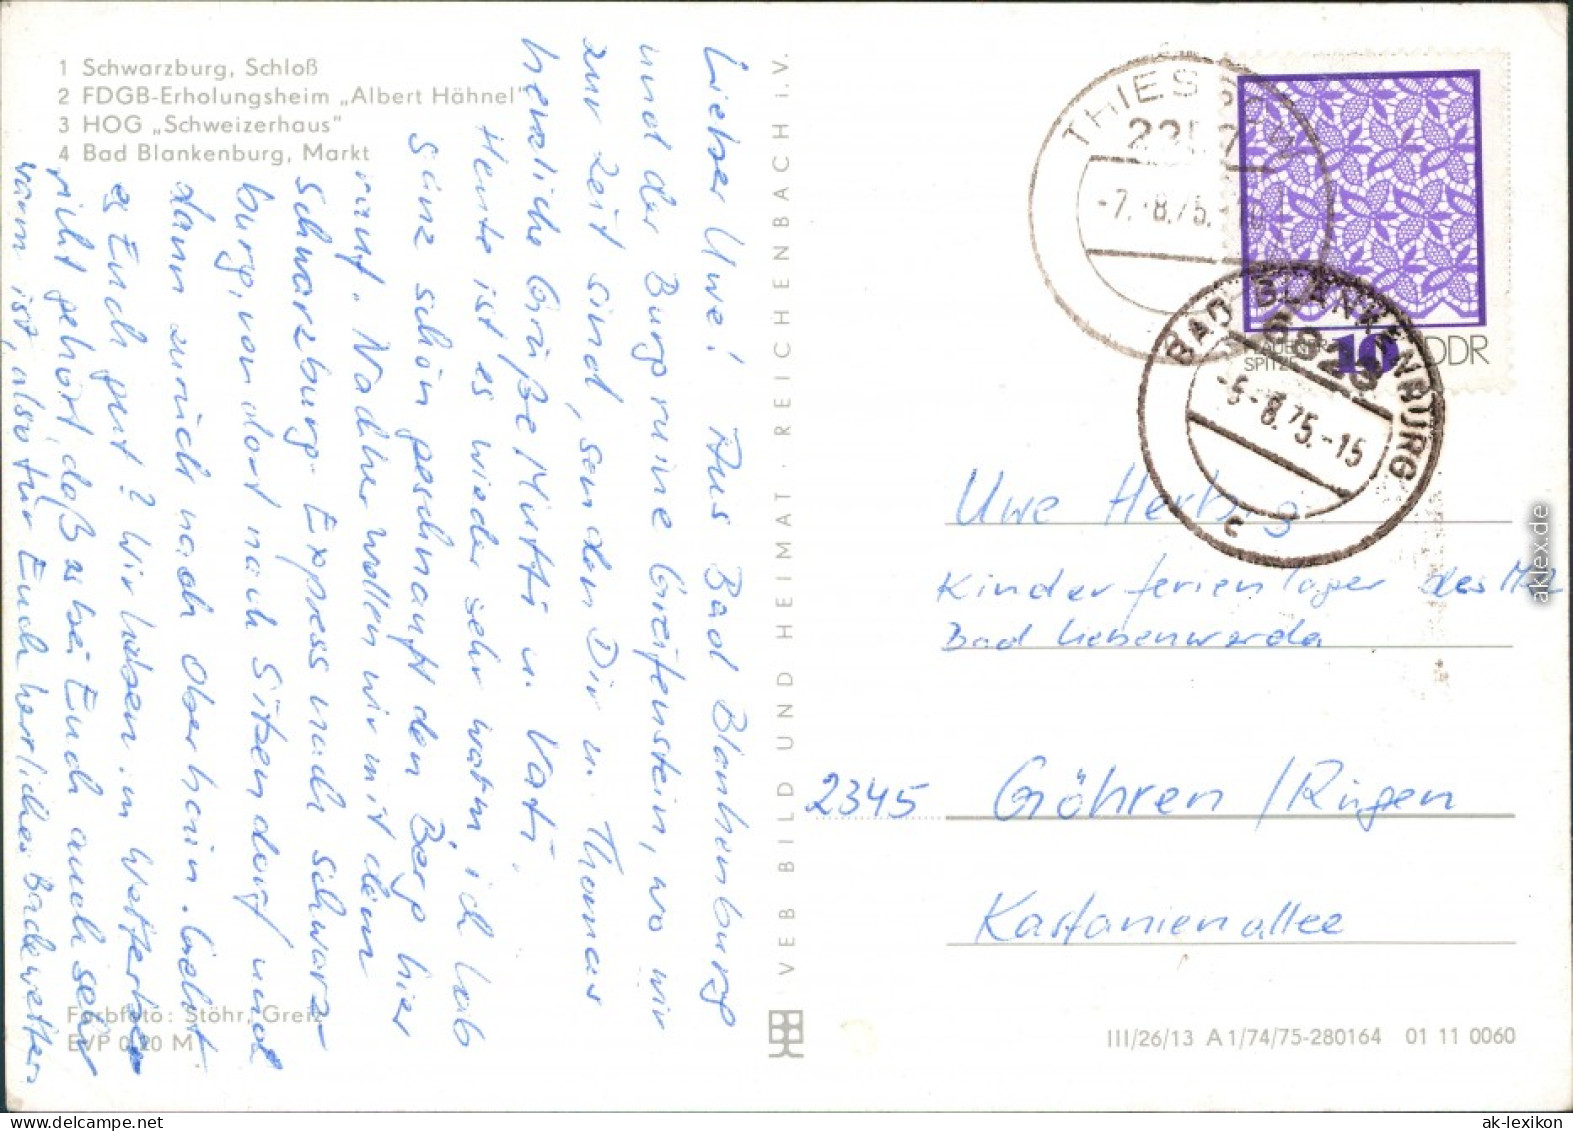 1 Schwarzburg, Schloß
2 FDGB-Erholungsheim „Albert Hähnel"
3 HOG „Schweizerhaus"
4 Bad Blankenburg, Markt
Lieber Uwe! Aus Bad Blankenburg
und der Burgruine Greifenstein, wo wir
zur Zeit sind, senden Dir u. Thomas
herzliche Grüße Mutti u. Vati.
Heute ist es wieder sehr warm, ich hab
ganz schön geschnauft den Berg hier
rauf. Nachher wollen wir mit dem
Schwarzburg-Express nach Schwarz-
burg, von dort nach Sitzendorf und
dann zurück nach Oberhain. Geht
es Euch gut? Wir haben im Wetterbe-
richt gehört, daß es bei Euch auch sehr
warm ist, also für Euch herrliches Badewetter.
Farbfoto: Stöhr, Greiz
EVP 0,20 M
VEB BILD UND HEIMAT · REICHENBACH i. V.
THIESSOW
-7.-8.75.
BAD BLANKENBURG
6823
-5.-8.75.-15
c
PLAUENER
SPITZE
10 DDR
Uwe Herbig
Kinderferienlager des
Bad Liebenwerda
2345 Göhren / Rügen
Kastanienallee
III/26/13 A 1/74/75-280164 01 11 0060
aklex.de
ak-lexikon